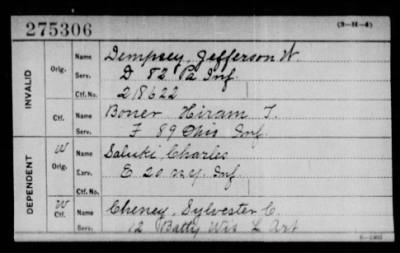 275306 (3-H-4)
INVALID
Orig. Name Dempsey, Jefferson W.
Serv. D 82 Pa Inf.
Ctf. No. 218622
Ctf. Name Boner Hiram T.
Serv. F 89 Ohio Inf
DEPENDENT
W Orig. Name Saluki Charles
Serv. E 20 N.Y. Inf.
Ctf. No.
W Ctf. Name Cheney, Sylvester C.
Serv. 12 Batty Wis L Art